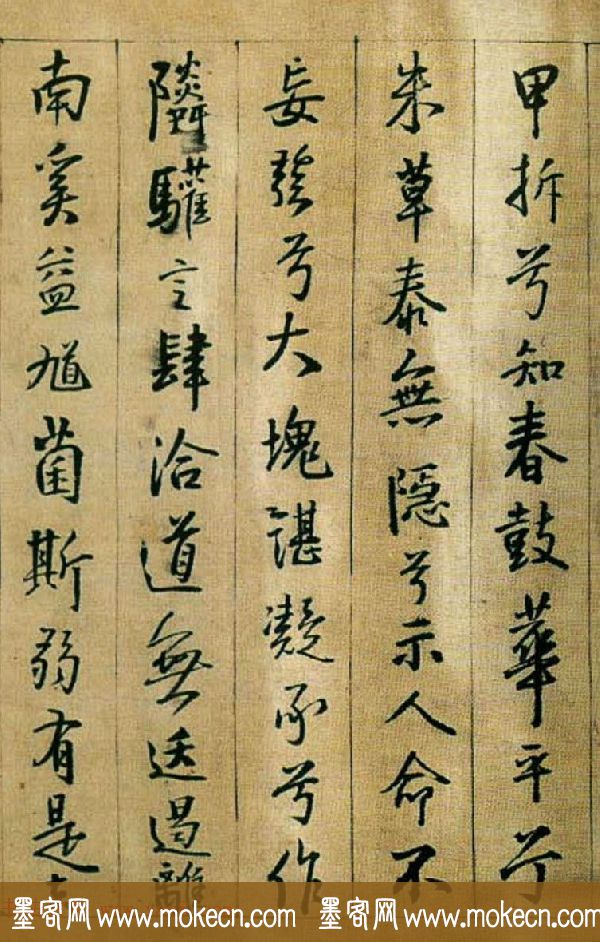 甲拆兮知春鼓華平兮
朱草泰無隱兮示人命不
妄發兮大塊諶凝承兮作
隣驩言肆洽道無迋遏離
南奚益馗菌斯弱有是
墨客网 www.mokecn.com 墨客网 www.mokecn.com